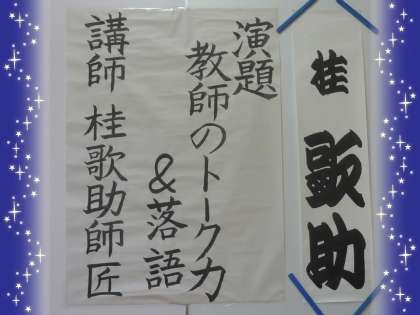 桂 歌助
演題
教師のトーク力
&落語
講師 桂歌助師匠